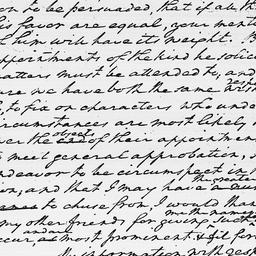 on to be persuaded, that if all th
his favor are equal, your ment
l him will have it weight. B
appointments of the kind he solic
matters must be attended to, and
we have both the same
, to fix on characters who und
circumstances are most likely,
ver the objects ead of their appointmen
meet general approbation, s
ndeavor to be circumspect in
ion; and that I may have a
to chuse from, I would than
my other friends for giving
and are
occur as most prominent. & fit for
information with resp